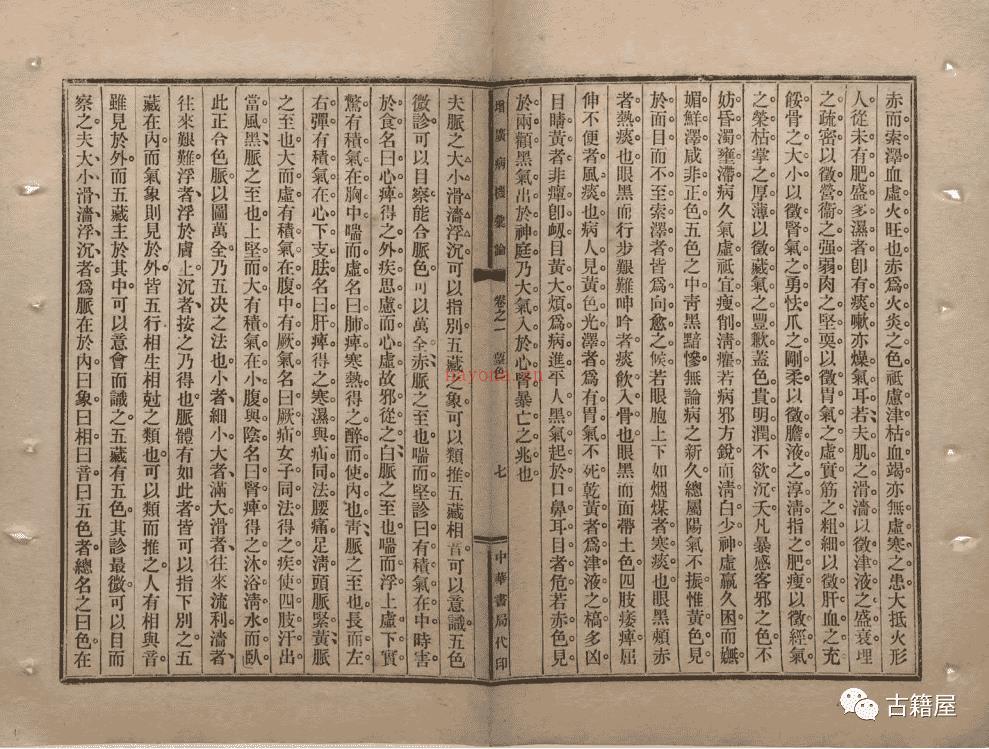 赤而索澤血虛火旺也赤爲火炎之色祗慮津枯血竭亦無虛寒之患大抵火形
人從未有肥盛多濕者卽有痰嗽亦燥氣耳若夫肌之滑濇以徵津液之盛衰理
之疏密以徵營衞之强弱肉之堅耎以徵胃氣之虛實筋之粗細以徵肝血之充
餒骨之大小以徵腎氣之勇怯爪之剛柔以徵膽液之淳淸指之肥瘦以徵經氣
之榮枯掌之厚薄以徵藏氣之豐歉蓋色貴明潤不欲沉夭凡暴感客邪之色不
妨昏濁壅滯病久氣虛祗宜瘦削淸癯若病邪方銳而淸白少神虛羸久困而嫵
媚鮮澤咸非正色五色之中靑黑黯慘無論病之新久總屬陽氣不振惟黃色見
於面目而不至索澤者皆爲向愈之候若眼胞上下如烟煤者寒痰也眼黑頰赤
者熱痰也眼黑而行步艱難呻吟者痰飮入骨也眼黑而面帶土色四肢痿痺屈
伸不便者風痰也病人見黃色光澤者爲有胃氣不死乾黃者爲津液之槁多凶
目睛黃者非癉卽衂目黃大煩爲病進平人黑氣起於口鼻耳目者危若赤色見
於兩顴黑氣出於神庭乃大氣入於心腎暴亡之兆也
增廣病機彙論 卷之一 望色 七 中華書局代印
夫脈之大小滑濇浮沉可以指別五藏之象可以類推五藏相音可以意識五色
微診可以目察能合脈色可以萬全赤脈之至也喘而堅診曰有積氣在中時害
於食名曰心痺得之外疾思慮而心虛故邪從之白脈之至也喘而浮上虛下實
驚有積氣在胸中喘而虛名曰肺痺寒熱得之醉而使內也靑脈之至也長而左
右彈有積氣在心下支胠名曰肝痺得之寒濕與疝同法腰痛足淸頭脈緊黃脈
之至也大而虛有積氣在腹中有厥氣名曰厥疝女子同法得之疾使四肢汗出
當風黑脈之至也上堅而大有積氣在小腹與陰名曰腎痺得之沐浴淸水而臥
此正合色脈以圖萬全乃五决之法也小者細小大者滿大滑者往來流利濇者
往來艱難浮者浮於膚上沉者按之乃得也脈體有如此者皆可以指下別之五
藏在內而氣象則見於外皆五行相生相尅之類也可以類而推之人有相與音
雖見於外而五藏主於其中可以意會而識之五藏有五色其診最微可以目而
察之夫大小滑濇浮沉者爲脈在於內曰象曰相曰音曰五色者總名之曰色在
nayona.cn
古籍屋